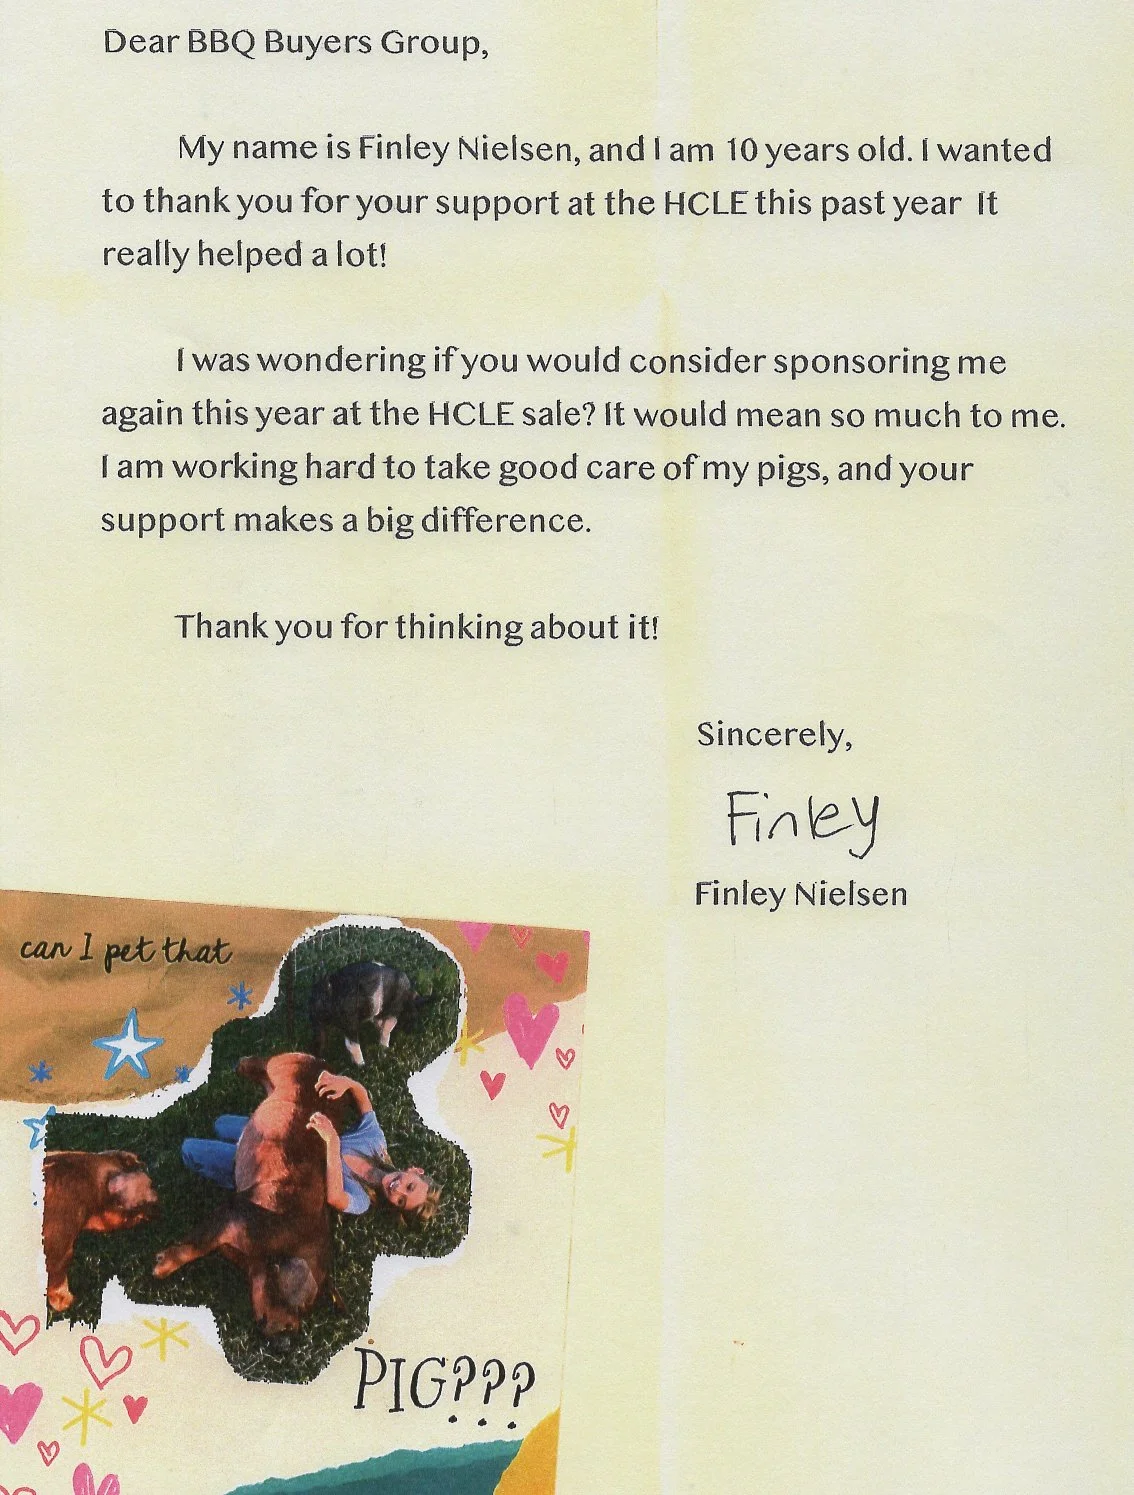 Dear BBQ Buyers Group,
My name is Finley Nielsen, and I am 10 years old. I wanted
to thank you for your support at the HCLE this past year It
really helped a lot!
I was wondering if you would consider sponsoring me
again this year at the HCLE sale? It would mean so much to me.
I am working hard to take good care of my pigs, and your
support makes a big difference.
Thank you for thinking about it!
Sincerely,
Finley
Finley Nielsen
can I pet that
PIG???